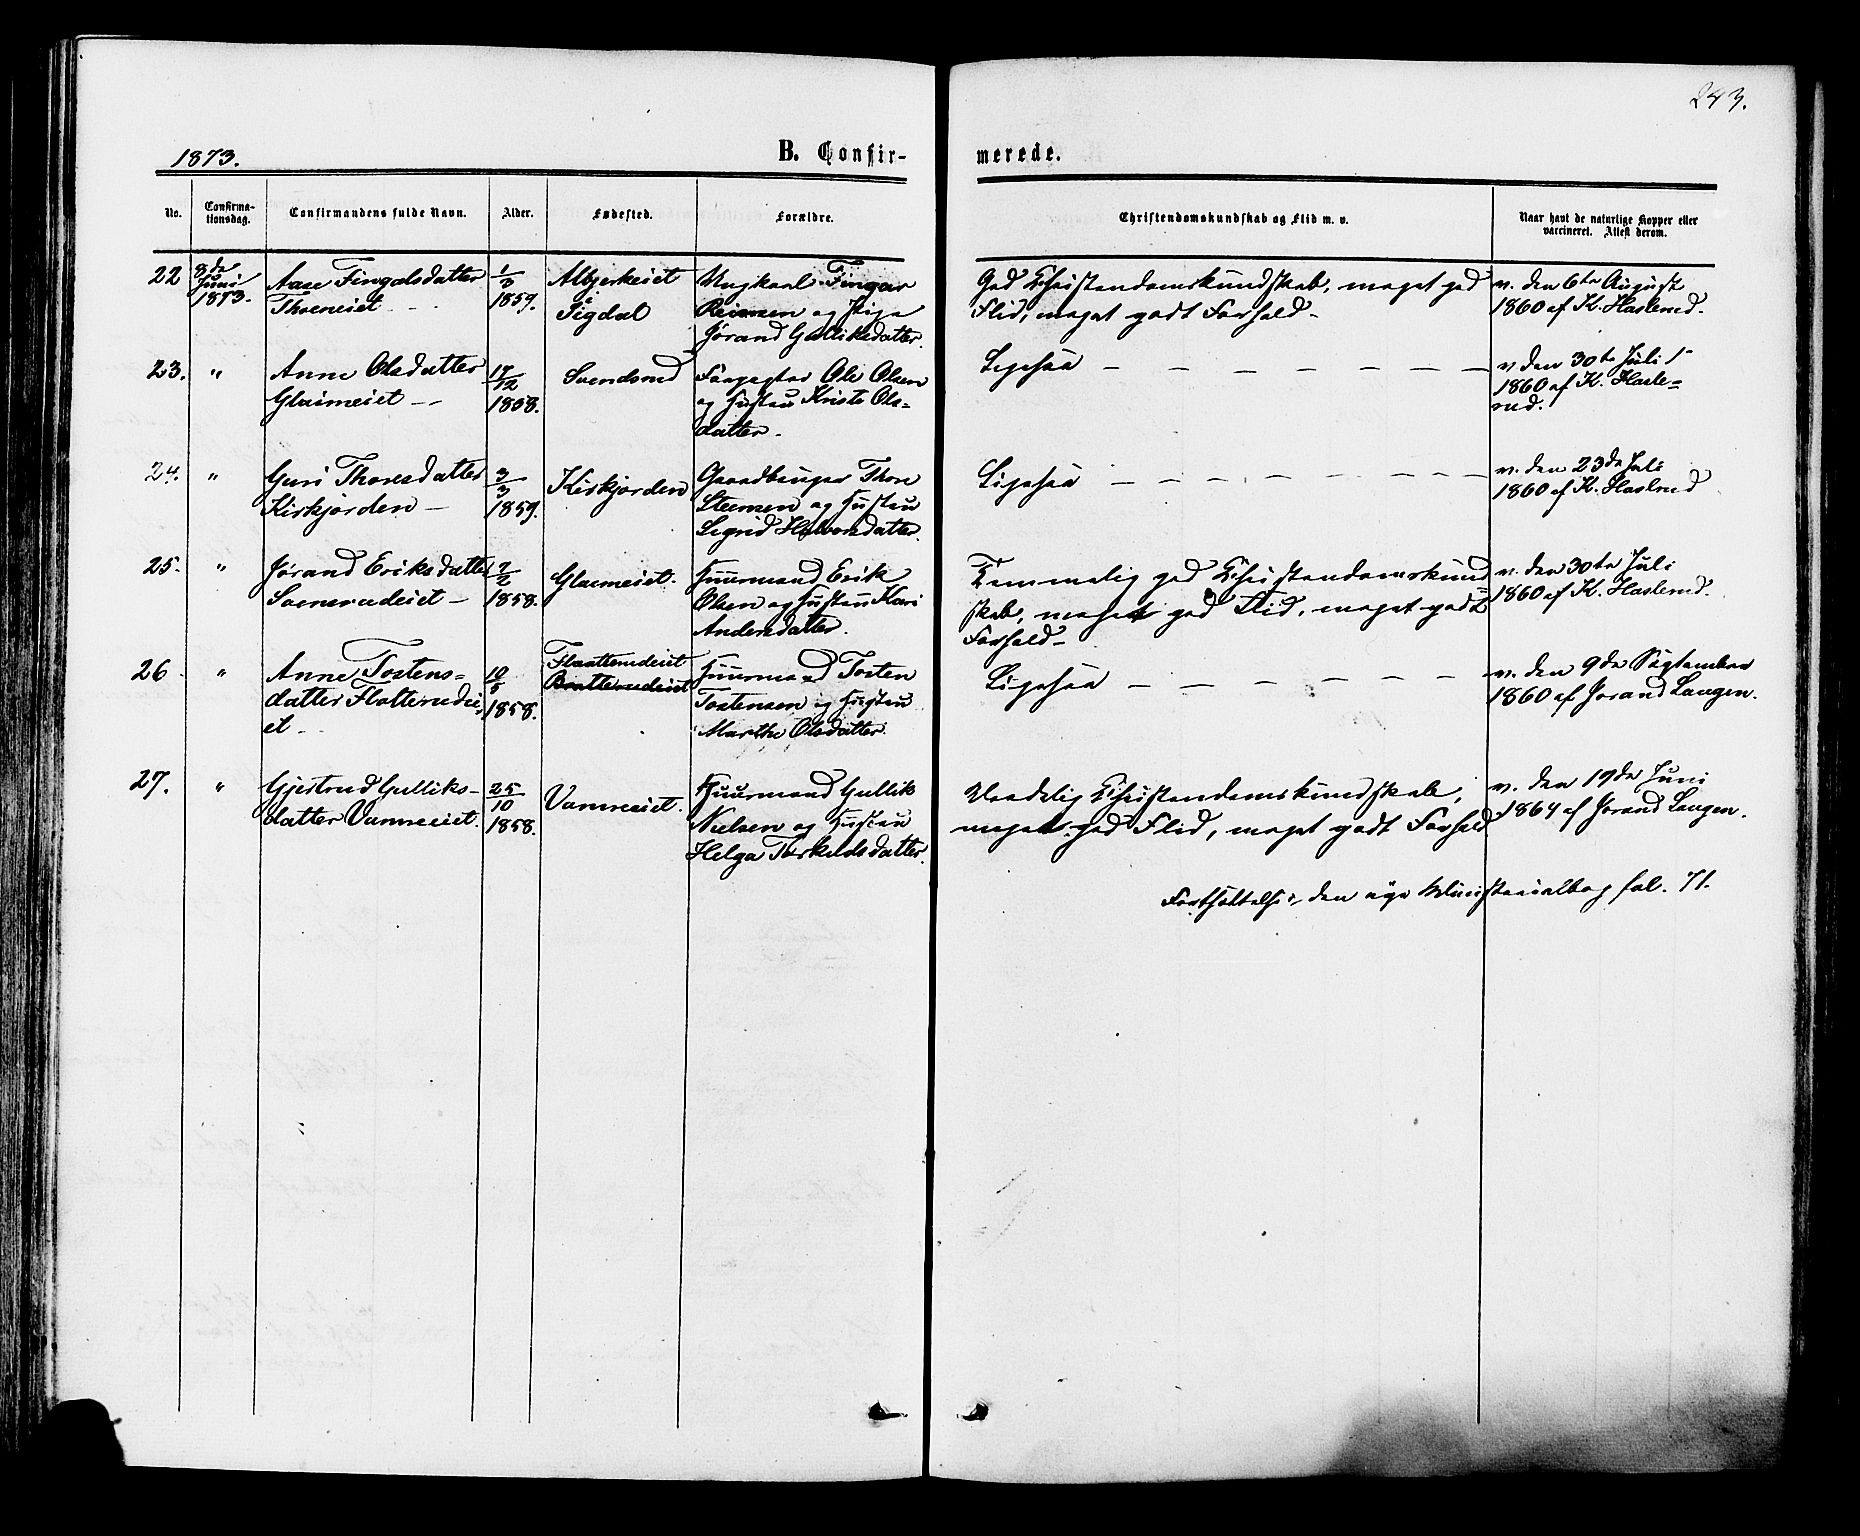 243.
1873.
B. Confir-
merede.
No.
Confirma-
tionsdag.
Confirmandens fulde Navn.
Alder.
Fødested.
Forældre.
Christendomskundskab og Flid m. v.
Naar havt de naturlige Kopper eller
vaccineret. Attest derom.
22
8de
Juni
1873.
Aase Fingalsdatter
Thoeneiet
1/3
1859.
Albjerkeiet
Sigdal
Ungkarl Fingar
Reiersen og Pige
Jørand Gulliksdatter.
God Christendomskundskab, meget god
Flid, meget godt Forhold
v. den 6te August
1860 af K. Haslerud.
23.
"
Anne Olsdatter
Glaimeiet
17/12
1858.
Svendsrud
Forpagter Ole Olsen
og Hustru Kristi Ols-
datter.
Ligesaa
v den 30te Juli
1860 af K. Hasle-
rud.
24.
"
Guri Thoresdatter
Kirkjorden
3/3
1859.
Kirkjorden
Gaardbruger Thore
Steensen og Hustru
Sigrid Halvorsdatter.
Ligesaa
v. den 23de Juli
1860 af K. Haslerud
25.
"
Jørand Eriksdatter
Soeneradeiet
7/2
1858.
Glaimeiet.
Huusmand Erik
Olsen og Hustru Kari
Andersdatter.
Temmelig god Christendomskund
skab, meget god Flid, meget godt
Forhold
v. den 30te Juli
1860 af K. Haslerud.
26
"
Anne Tostens-
datter Flatterudei-
et
10/5
1858.
Flaatterudeiet
Bratterudeiet
Huusmand Tosten
Tostensen og Hustru
Marthe Olsdatter
Ligesaa
v. den 9de September
1860 af Jorand Laugen.
27.
"
Gjertrud Gulliks-
datter Vanneeiet.
25/10
1858.
Vanneeiet.
Huusmand Gullik
Nielsen og Hustru
Helga Torkeldsdatter.
Maadelig Christendomskundskab,
meget god Flid, meget godt Forhold
v. den 19de Juni
1864 af Jorand Laugen.
Fortsættelse i den nye Ministerialbog fol. 71.